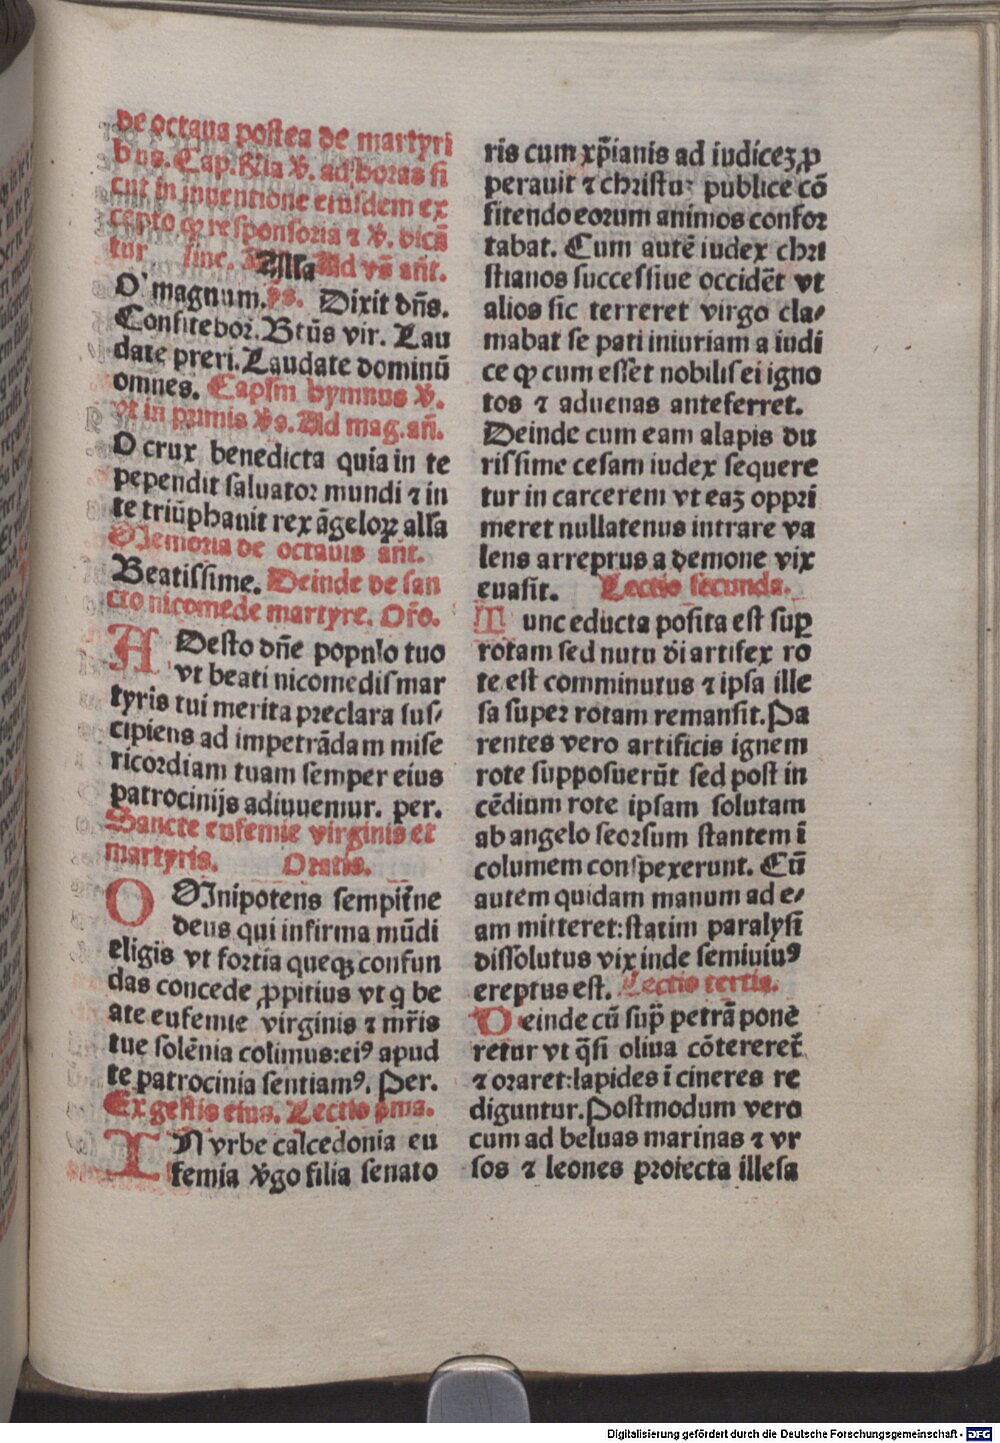 de octaua postea de martyri
bus. Cap. ꝶia ℣. ad horas si
cut in inuentione eiusdem ex
cepto ꝙ responsoria ⁊ ℣. dicā
tur sine. Alla Ad vs̄ an̄t.
O magnum. ps. Dixit dn̄s.
Confitebor. Btūs vir. Lau
date pueri. Laudate dominū
omnes. Caplm hymnus ℣.
vt in primis v̄s. Ad mag. an̄.
O crux benedicta quia in te
pependit saluator mundi ⁊ in
te triūphauit rex āgeloꝝ alla
Memoria de octauis an̄t.
Beatissime. Deinde de san
cto nicomede martyre. Oro̅.
ADesto dn̄e populo tuo
vt beati nicomedis mar
tyris tui merita preclara sus⸗
cipiens ad impetrādam mise
ricordiam tuam semper eius
patrocinijs adiuuemur. per.
Sancte eufemie virginis et
martyris. Oratio.
OMnipotens sempit̄ne
deus qui infirma mūdi
eligis vt fortia queqꝫ confun
das concede ꝓpitius vt q̇ be
ate eufemie virginis ⁊ mr̄is
tue solēnia colimus: eiꝰ apud
te patrocinia sentiamꝰ. Per.
Ex gestis eius. Lectio pma.
IN vrbe calcedonia eu
femia v̄go filia senato
ris cum xp̄ianis ad iudiceꝫ ꝓ
perauit ⁊ christuꝫ publice cō
fitendo eorum animos confor
tabat. Cum autē iudex chri
stianos successiue occidēt vt
alios sic terreret virgo cla⸗
mabat se pati iniuriam a iudi
ce ꝙ cum esset nobilis ei igno
tos ⁊ aduenas anteferret.
Deinde cum eam alapis du
rissime cesam iudex sequere
tur in carcerem vt eaꝫ oppri
meret nullatenus intrare va
lens arreptus a demone vix
euasit. Lectio secunda.
Tunc educta posita est suꝑ
rotam sed nutu di artifex ro
te est comminutus ⁊ ipsa ille
sa super rotam remansit. Pa
rentes vero artificis ignem
rote supposuerūt sed post in
cēdium rote ipsam solutam
ab angelo seorsum stantem ī
columem conspexerunt. Cū
autem quidam manum ad e⸗
am mitteret: statim paralysi
dissolutus vix inde semiuiuꝰ
ereptus est. Lectio tertia.
Deinde cū sup̄ petrā ponē
retur vt q̄si oliua cōtereret̄
⁊ oraret: lapides ī cineres re
diguntur. Postmodum vero
cum ad beluas marinas ⁊ vr
sos ⁊ leones proiecta illesa
Digitalisierung gefördert durch die Deutsche Forschungsgemeinschaft - DFG